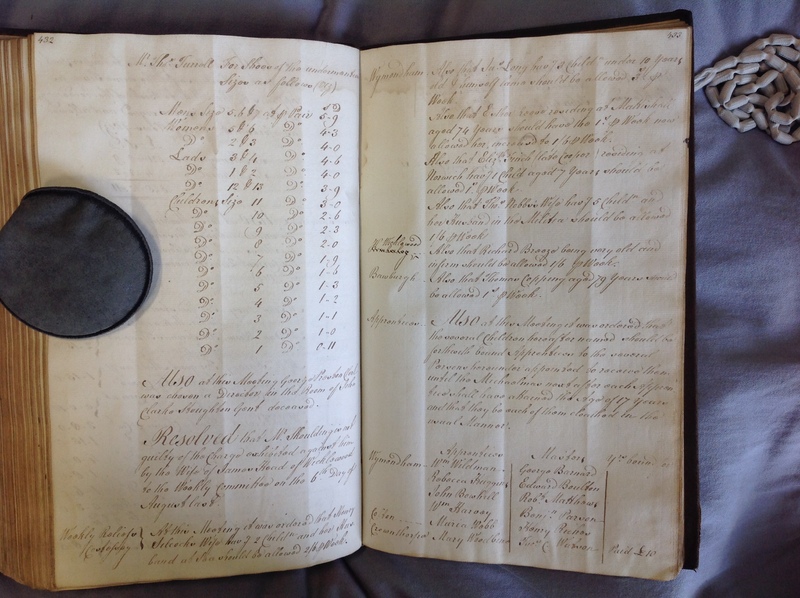 432
Mr. Thos. Turrell For Shoes of the undermentioned
Sizes as follows
Mens Size 5, 6 & 7 at p Pair 5-9
Womens 5 & 6 Do. 4-3
Do. 2 & 3 Do. 4-0
Lads 3 & 4 Do. 4-6
Do. 1 & 2 Do. 4-0
Do. 12 & 13 Do. 3-9
Childrens Size 11 Do. 3-0
Do. 10 Do. 2-6
Do. 9 Do. 2-3
Do. 8 Do. 2-0
Do. 7 Do. 1-9
Do. 6 Do. 1-6
Do. 5 Do. 1-3
Do. 4 Do. 1-2
Do. 3 Do. 1-1
Do. 2 Do. 1-0
Do. 1 Do. 0-11
Also at this Meeting George Preston
was chosen a Director in the Room of John
Clarke Stoughton Gent deceased.
Resolved that Mr. Moulding is not
guilty of the Charge exhibited against him
by the Wife of James Head of Wicklewood
to the Weekly Committee on the 6th Day of
August last
Weekly Reliefs At this Meeting it was ordered that Henry
Wife havg. 2 Childn. and her Hus
band at Sea should be allowed 2/6 p Week.
433
Wymondham Also that Jas. Long havg. 3 Childn. under 10 Years
old & himself lame should be allowed p
Week.
Also that Esther residing at
aged 74 Years should have the 1s. p Week now
allowed her, increased to 1/6 p Week.
Also that Elizth. Finch late Cooper residing at
Norwich havg. 1 Child aged 7 Years should be
allowed 1s. p Week.
Also that Thos. Nobbs Wife havg. 5 Childn. and
her Husband in the Militia should be allowed
1/6 p Week.
Also that Richard Breeze being very old and
infirm should be allowed 1/6 p Week.
Bawburgh Also that Thomas Copping aged 79 Years should
be allowed 1s. p Week.
Apprentices Also at this Meeting it was ordered that
the several Children hereafter named should be
forthwith bound Apprentices to the several
Persons hereunder appointed to receive them
until the Michaelmas next after such Appren
tices shall have attained the Age of 17 Years
and that they be each of them cloathed in the
usual Manner.
Apprentices Masters
Wymondham Wm. Wildman George Barnard
Rebecca Edward Boulton
John Bowhill Robt. Matthews
Wm. Harvey Benjn. Parson
Maria Nobb Henry
Crownthorpe Mary Jas. C. Paid £10